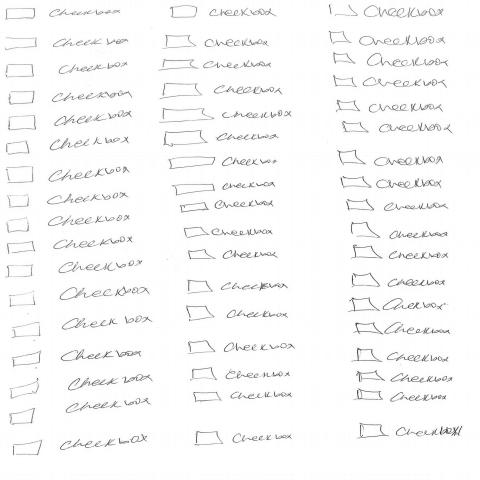 Checkbox
Check box
Checkbox
Checkbox
Checkbox
Checkbox
Checkbox
Checkbox
Checkbox
Checkbox
Checkbox
Checkbox
Check box
Check box
Check box
Check box
Checkbox
checkbox
Checkbox
Checkbox
Checkbox
Checkbox
Checkbox
Checkbox
checkbox
Checkbox
Checkbox
Checkbox
Checkbox
Checkbox
Checkbox
Checkbox
Checkbox
Checkbox
Checkbox
Checkbox
Checkbox
Checkbox
Checkbox
Checkbox
Checkbox
Checkbox
Checkbox
Checkbox
Checkbox
Checkbox
Checkbox
Checkbox
Checkbox
Checkbox
Checkbox